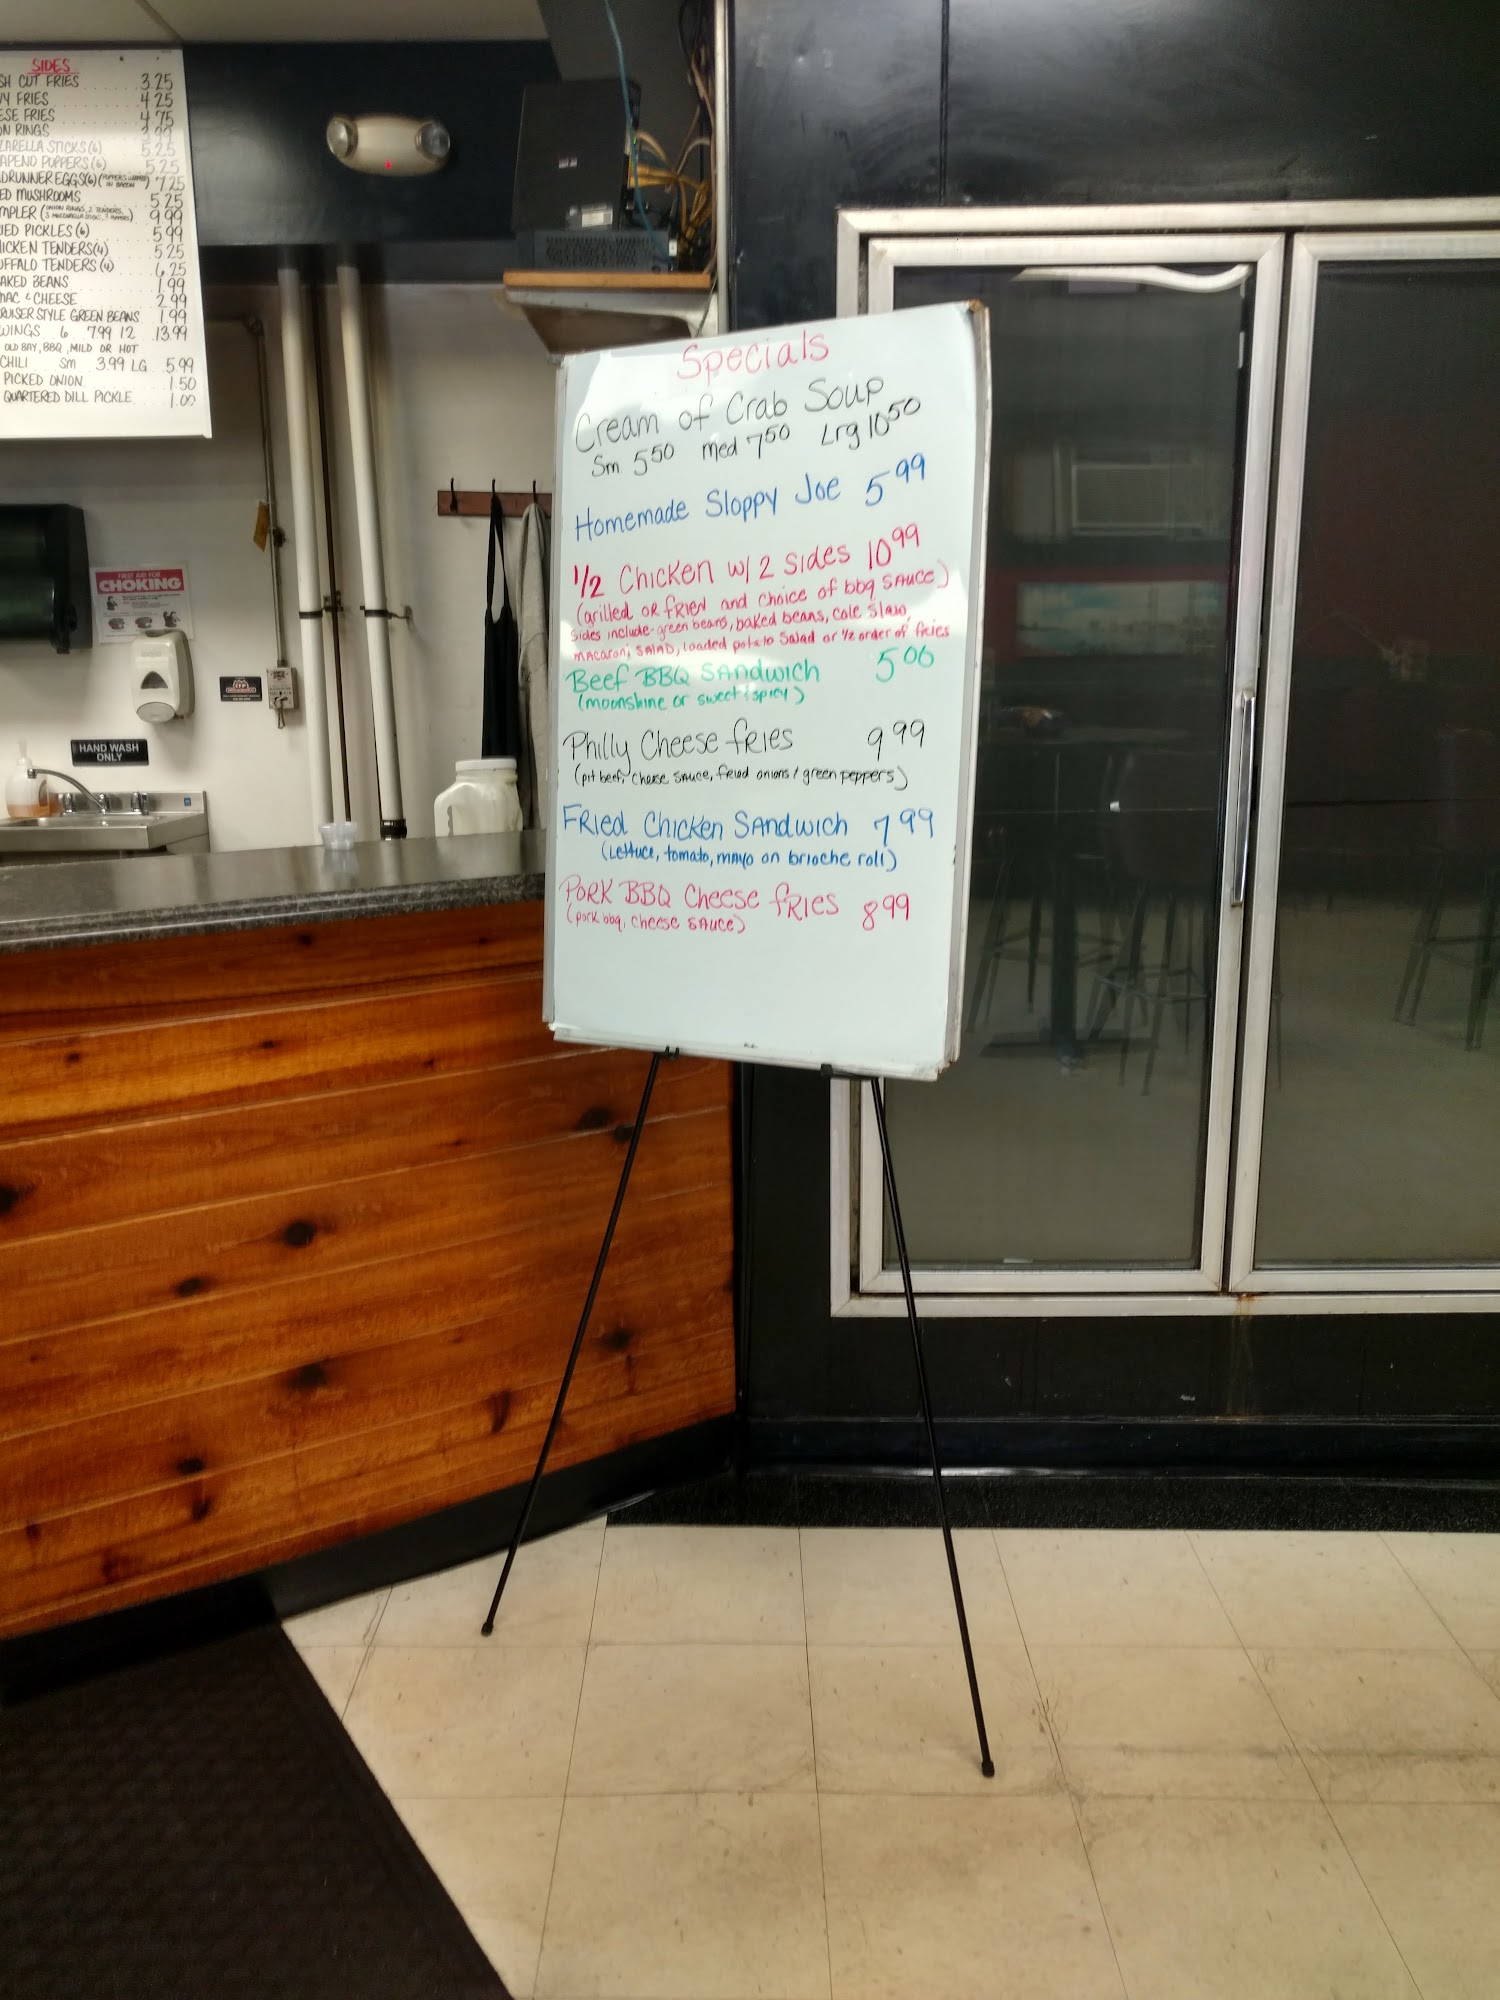 SIDES
SH CUT FRIES 3.25
VY FRIES 4.25
ESE FRIES 4.75
ON RINGS 3.99
ZARELLA STICKS (6) 5.25
APENO POPPERS (6) 5.25
ADRUNNER EGGS (6) (POPPERS WRAPPED IN BACON) 7.25
ED MUSHROOMS 5.25
MPLER (ONION RINGS, 2 TENDERS, 9.99
IED PICKLES (6) 5.99
ICKEN TENDERS (4) 5.25
UFFALO TENDERS (4) 6.25
AKED BEANS 1.99
MAC & CHEESE 2.99
RUISER STYLE GREEN BEANS 1.99
WINGS 6 7.99 12 13.99
OLD BAY, BBQ, MILD OR HOT
CHILI Sm 3.99 LG 5.99
PICKED ONION 1.50
QUARTERED DILL PICKLE 1.00
FIRST AID FOR
CHOKING
HAND WASH
ONLY
Specials
Cream of Crab Soup
Sm 5.50 med 7.50 Lrg 10.50
Homemade Sloppy Joe 5.99
1/2 Chicken w/ 2 sides 10.99
(grilled or fried and choice of bbq sauce)
sides include-green beans, baked beans, cole slaw,
macaroni salad, loaded potato salad or 1/2 order of fries
Beef BBQ Sandwich 5.00
(moonshine or sweet & spicy)
Philly Cheese fries 9.99
(pit beef, cheese sauce, fried onions & green peppers)
Fried Chicken Sandwich 7.99
(lettuce, tomato, mayo on brioche roll)
Pork BBQ Cheese fries 8.99
(pork bbq, cheese sauce)